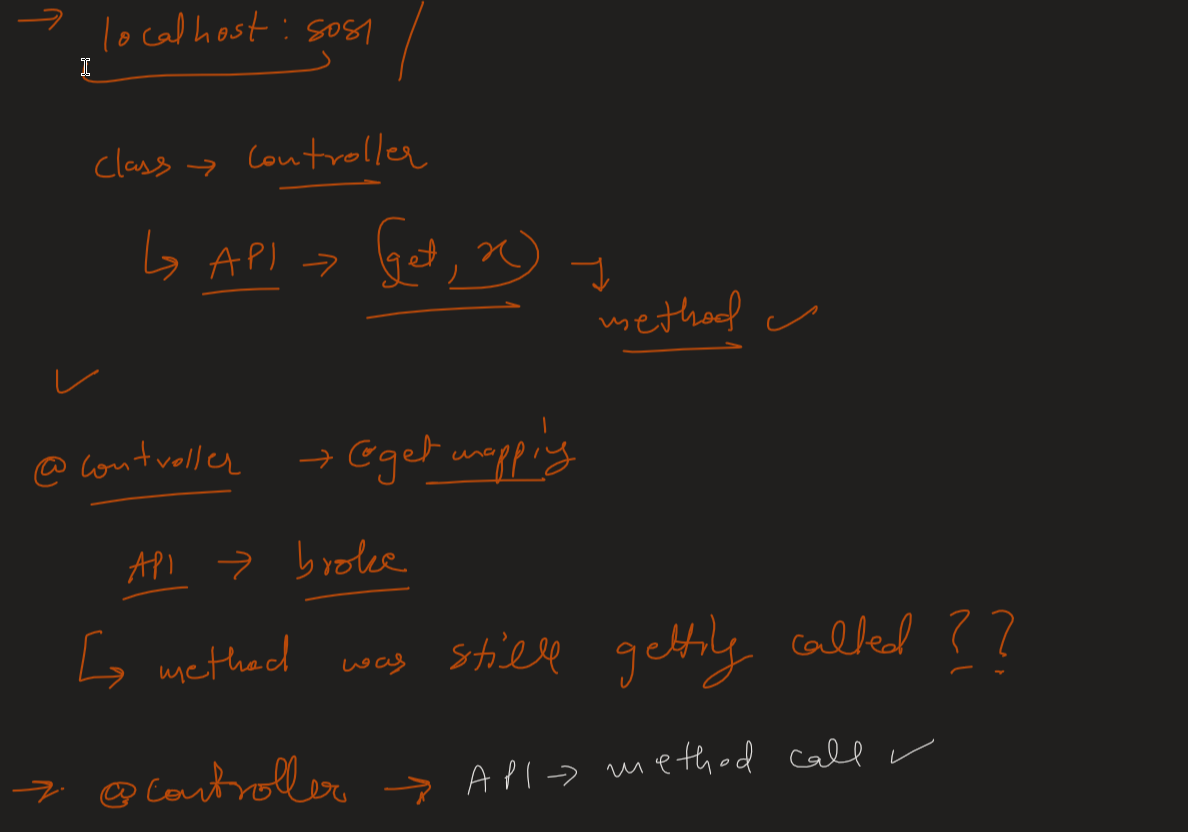 → localhost: 8081 /
class → Controller
↳ API → (get, x) →
method ✓
✓
@controller → @get mapping
API → broke
↳ method was still getting called ??
→ @controller → API → method call ✓